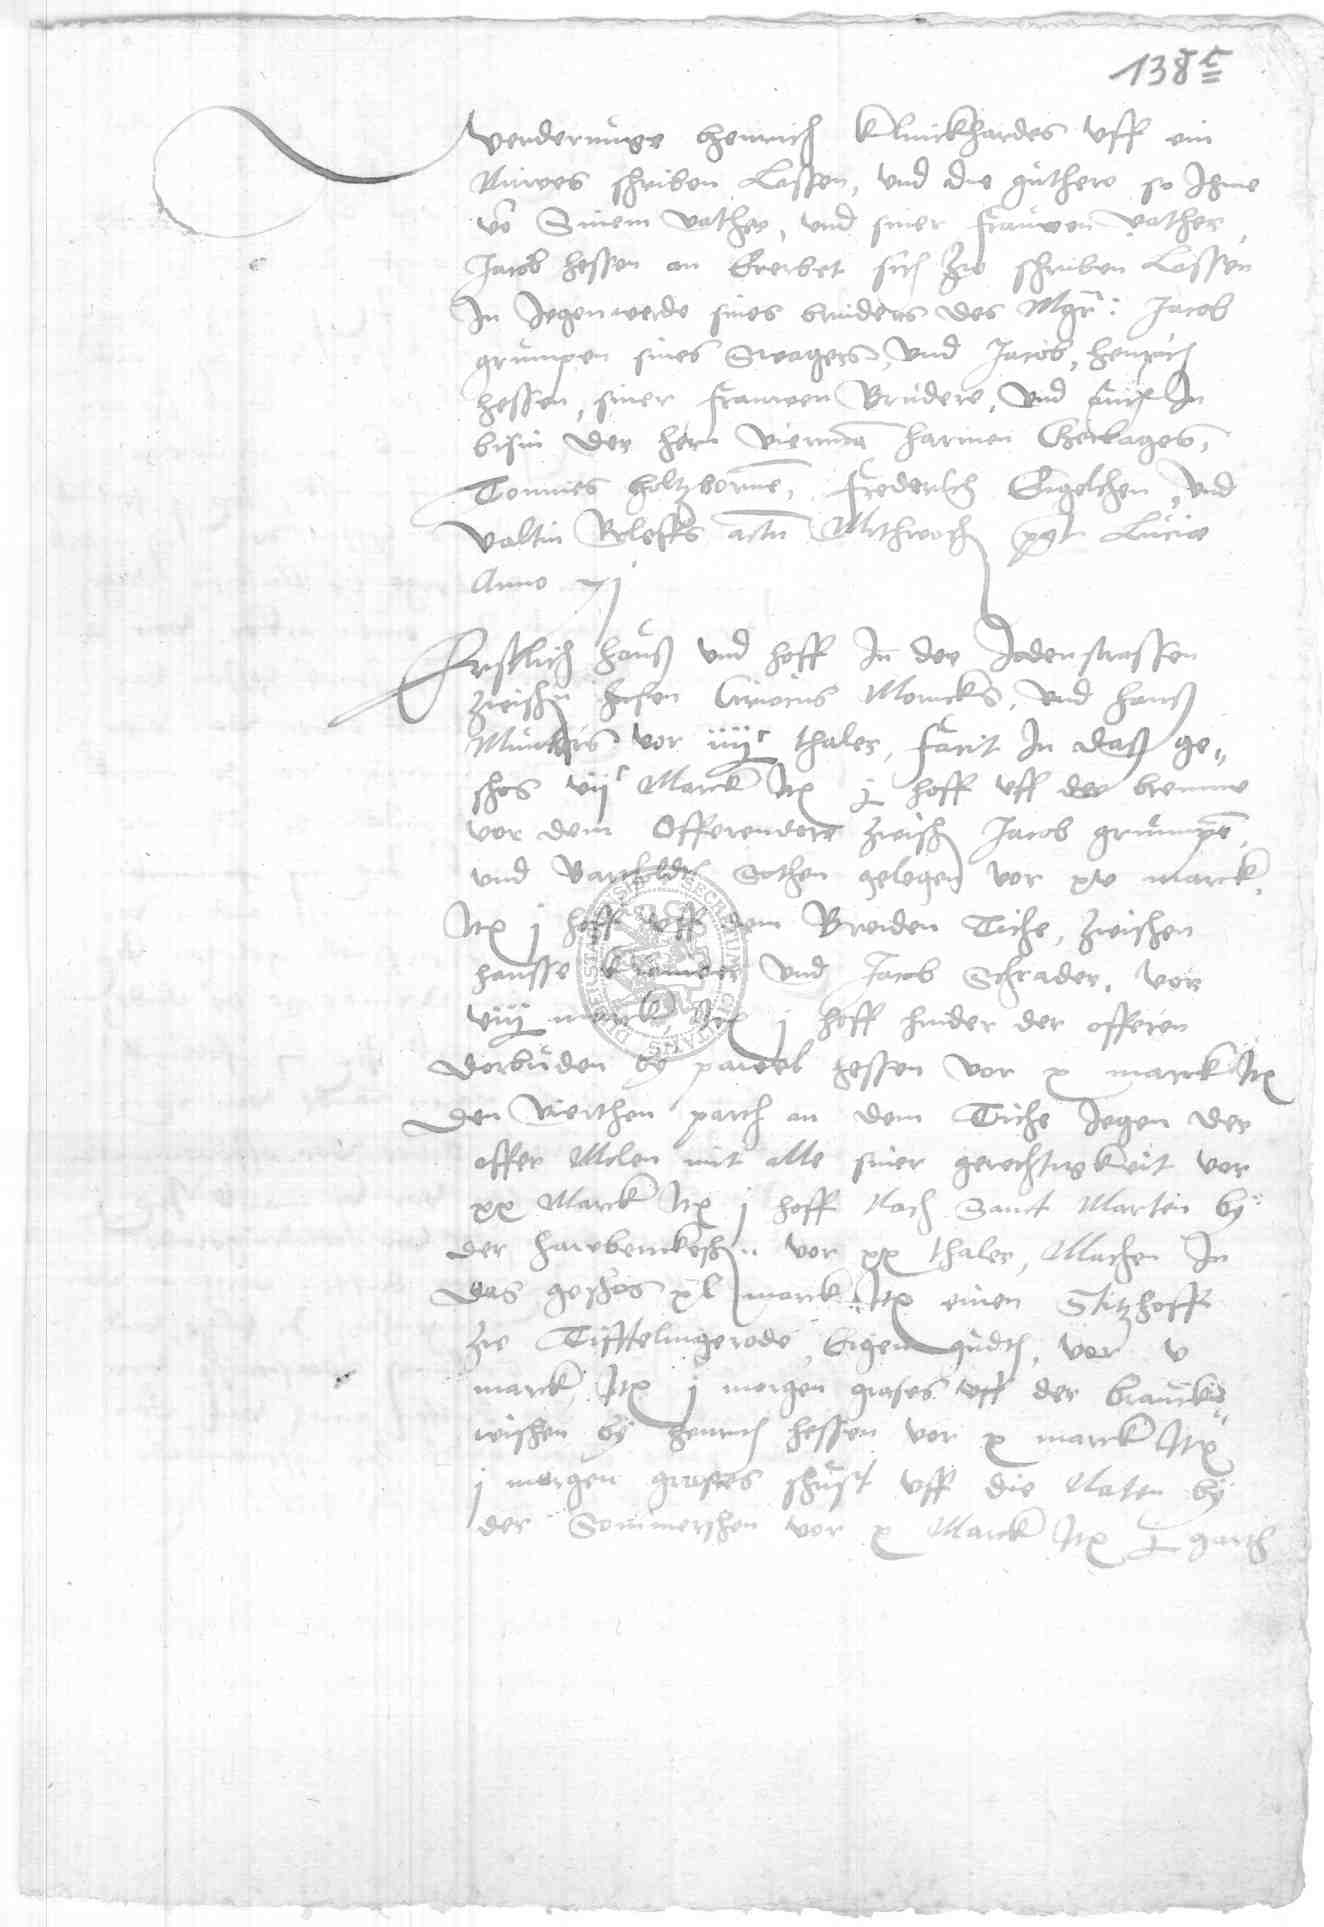 138c
Verderunge Henrich Klinckhardes vff ein
Nuwes schriben Lassen, vnd die guthere so Ihme
vo Sinem vather, vnd siner frauwen vather,
Jacob Hessen an Ererbet sich zu schriben Lassen
In Jegenwerde sines bruders des Mgr: Jacob
grumpen sines Swagers, vnd Jacob, Henrich
Hessen, siner frauwen Brudere, vnd auch In
bisin der hern viermā Harmen Gerlages,
Tonnies Holtzborne, Frederich Engelchen, vnd
Valtin Roleffs actū Mithwoch post Lucie
Anno xj
Erstlich Hauß vnd hoff In der Jodenstrassen
zwischn husen Ciriacus Monicks, vnd Hanß
Munters vor iiijc thaler, facit In daß ge„
schos vijc Marck Itē j hoff vff der bremme
vor dem Offerendore zwisch Jacob grumpē,
vnd Bartholdt Sothen gelegen vor xv marck,
Itē j hoff vff dem Breiden Tiche, zwischen
hansse und Jacob Schrader, vor
viij marck, Itē j hoff hinder der offeren
dorbuden by pawel Hessen vor x marck Itē
den vierthen parth an dem Tiche Jegen der
offer Molen mit alle siner gerechtigkeit vor
xx Marck Itē j hoff Nach Sanct Marten by
der vor xx thaler, Machen In
das geschos xl marck, Itē einen Sitzhoff
zu Tiftelingerode, Eigen gudth, vor v
marck, Itē j morgen grases vff der brauck„
wischen by Henrich Hessen vor x marck Itē
j morgen grases schust vff die Naten by
der Sommerschen vor x Marck Itē j garth